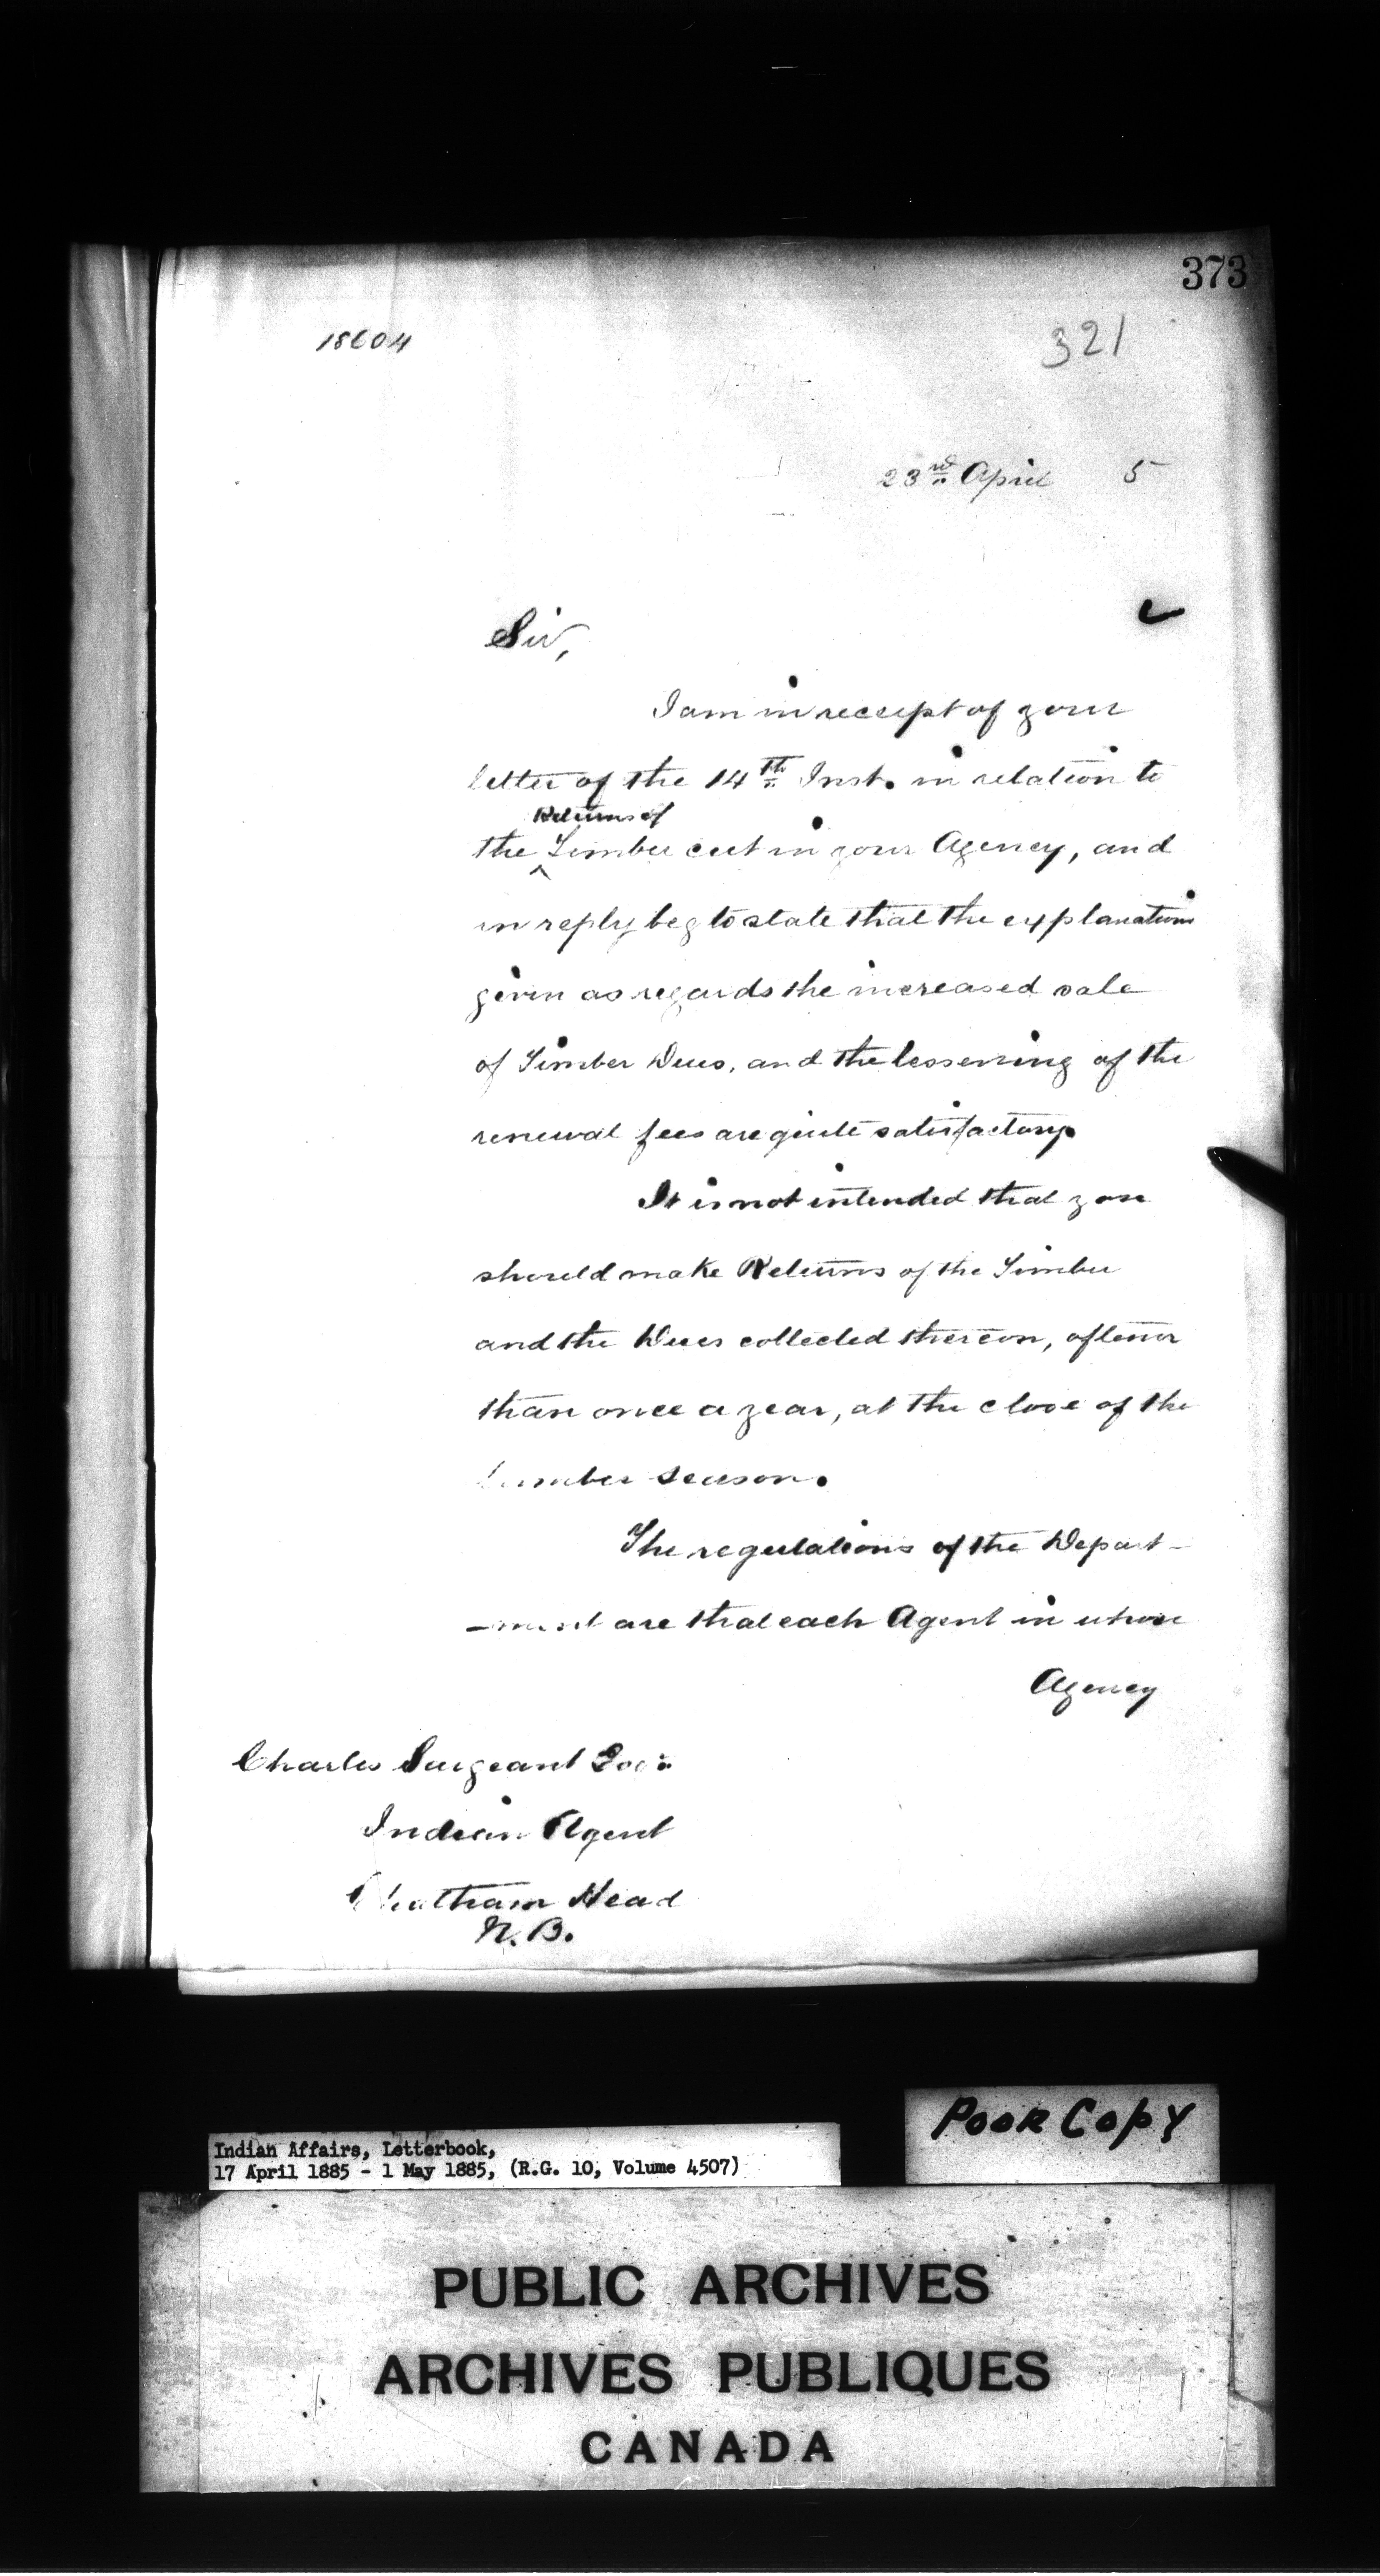 373
18604
321
23rd April 5
Sir,
I am in receipt of your
letter of the 14th Inst. in relation to
Returns of
the ^ Timber cut in your Agency, and
in reply beg to state that the explanations
given as regards the increased sale
of Timber Dues, and the lessening of the
renewal fees are quite satisfactory.
It is not intended that you
should make Returns of the Timber
and the Dues collected thereon, oftener
than once a year, at the close of the
Lumber season.
The regulations of the Depart-
-ment are that each Agent in whose
Agency
Charles Sargeant Esq:
Indian Agent
Chatham Head
N.B.
Poor Copy
Indian Affairs, Letterbook,
17 April 1885 - 1 May 1885, (R.G. 10, Volume 4507)
PUBLIC ARCHIVES
ARCHIVES PUBLIQUES
CANADA